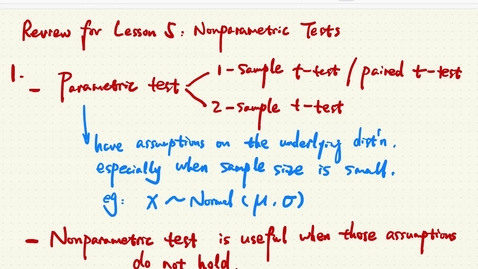 Review for Lesson 5: Nonparametric Tests
1. - Parametric test
1-sample t-test / paired t-test
2-sample t-test
have assumptions on the underlying dist'n.
especially when sample size is small.
eg: X ~ Normal (μ, σ)
- Nonparametric test is useful when those assumptions
do not hold.